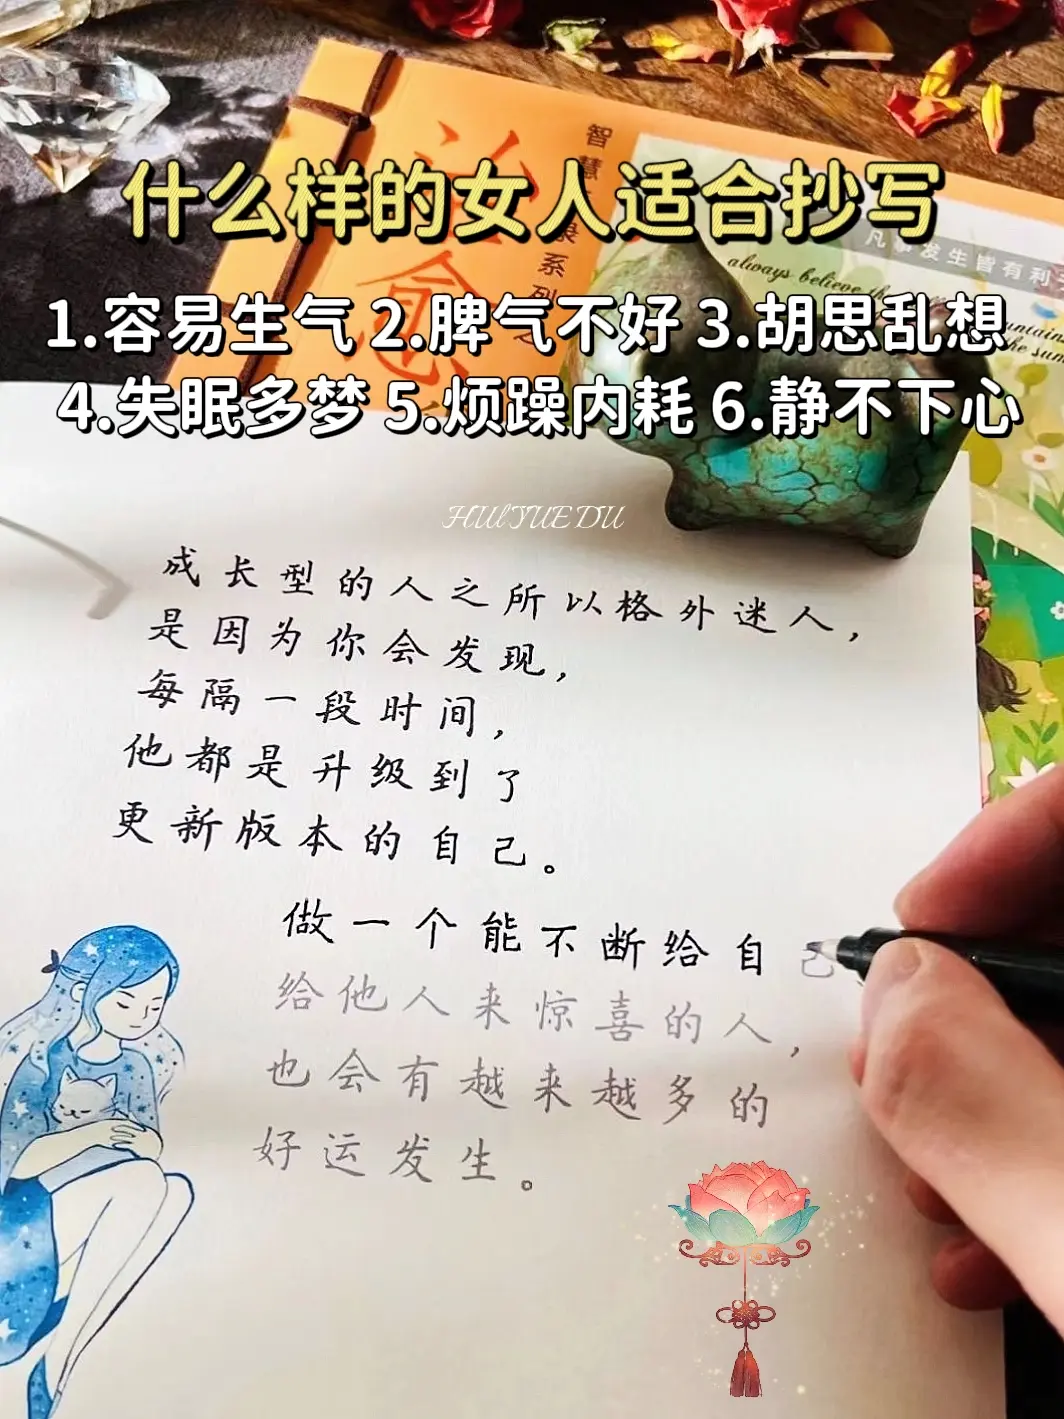 什么样的女人适合抄写
1.容易生气 2.脾气不好 3.胡思乱想
4.失眠多梦 5.烦躁内耗 6.静不下心
治愈
智慧
录系列
凡事发生皆有利
always believe
HUIYUEDU
成长型的人之所以格外迷人，
是因为你会发现，
每隔一段时间，
他都是升级到了
更新版本的自己。
做一个能不断给自己
给他人来惊喜的人，
也会有越来越多的
好运发生。